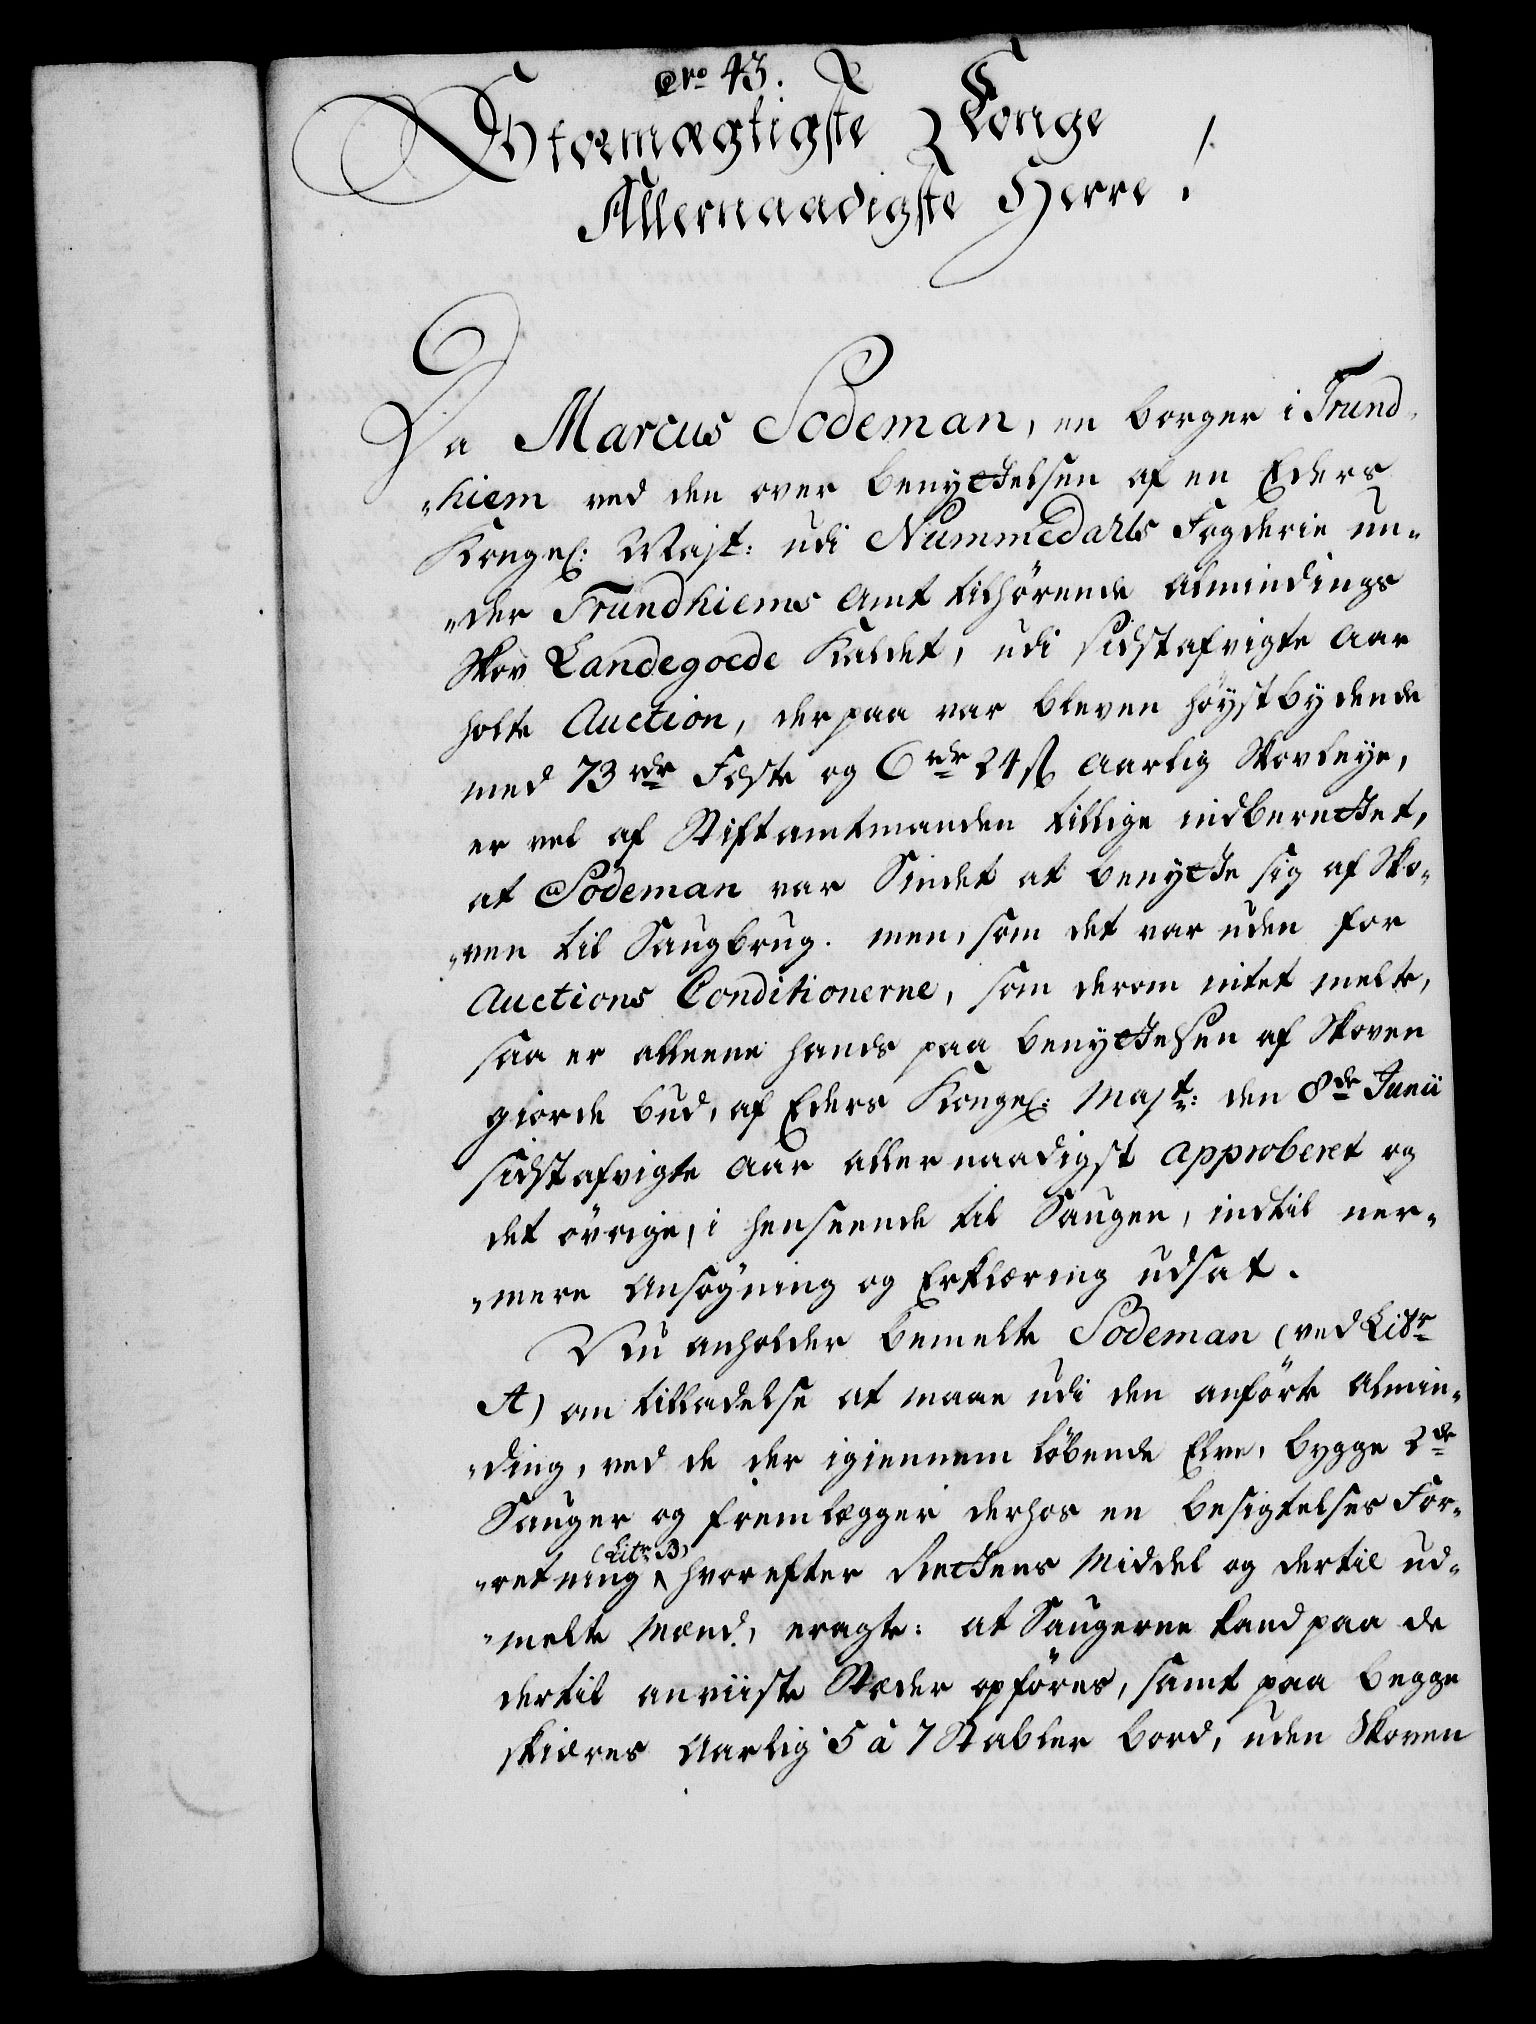 Nro 43.
Stormægtigste Konge
Allernaadigste Herre!
Da Marcus Sodeman, en borger i Trund-
„hiem ved den over benyttelsen af en Eders
Kongel: Majt: udi Nummedahls Fogderie un-
„der Trundhiems Amt tilhörende almindings
Skov Landegoede Kaldet, udi sidstafvigte Aar
holte Auction, derpaa var bleven høystbydende
med 73 rdr Feste og 6 rdr 24 s Aarlig Skovleye,
er vel af Stiftamtmanden tillige indberettet,
at Sodeman var Sindet at benytte sig af Sko-
„ven til Saugbrug. men, som det var uden for
Auctions Conditionerne, som derom intet melte,
saa er alleene hands paa benyttelsen af Skoven
giorde bud, af Eders Kongel: Majt: den 8de Junii
sidstafvigte Aar allernaadigst approberet og
det övrige, i henseende til Saugen, indtil ner-
„mere Ansøgning og Erklæring udsat.
Nu anholder bemelte Sodeman (ved Litr
A) om tilladelse at maae udi den anförte Almin-
„ding, ved de der igiennem löbende Elve, bygge 2de
Sauger og fremlægger derhos en besigtelses For-
(Litr B)
„retning hvorefter Rettens Middel og dertil ud-
„melte Mænd, eragte: at Saugerne kand paa de
dertil anviiste Stæder opföres, samt paa begge
skieres Aarlig 5 à 7 Stabler bord, uden Skoven